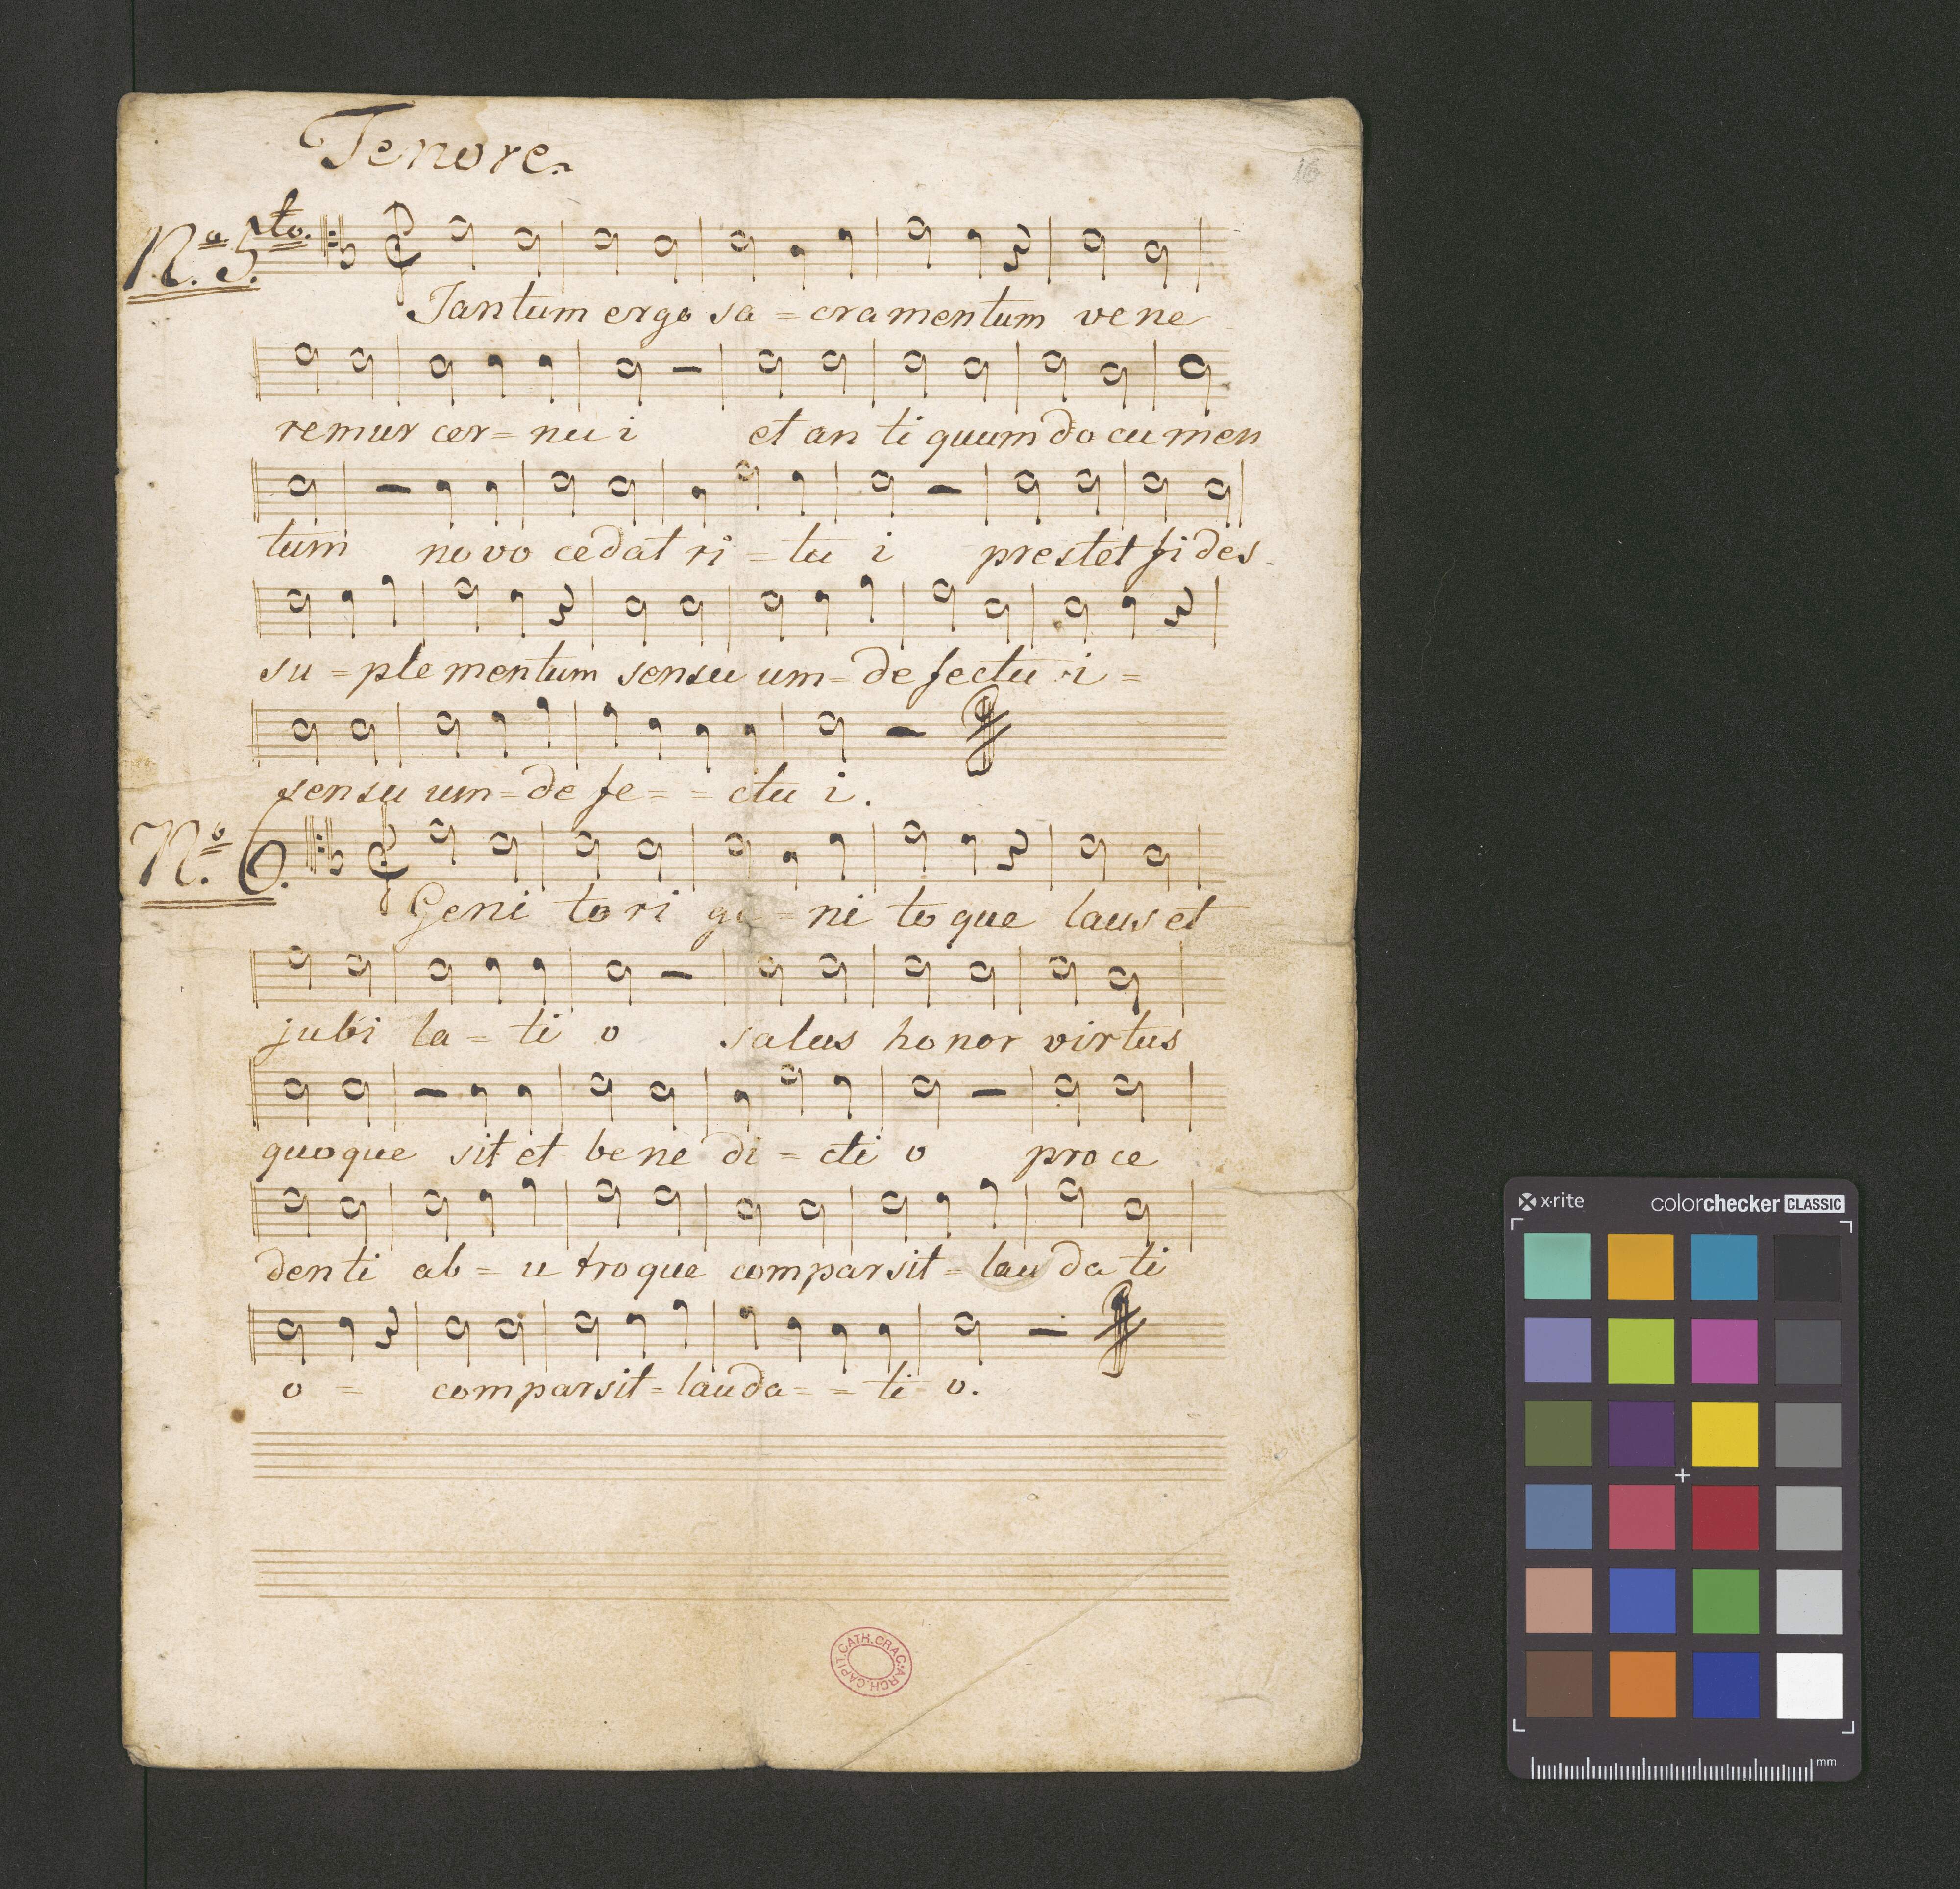 Tenore.
16
No. 5to.
Tantum ergo sa = cramentum vene
remur cer = nu i et an ti quum do cu men
tum no vo cedat ri = tu i prestet fi des
su = ple mentum sensu um = de fectu i =
sensu um = de fe = = ctu i.
No. 6.
Geni to ri ge = ni to que laus et
jubi la = ti o salus ho nor virtus
quoque sit et be ne di = cti o pro ce
denti ab = u troque comparsit = lau da ti
o = comparsit = lauda = = ti o.
CAPIT. CATH. CRAC. ARCH.
x·rite colorchecker CLASSIC
mm